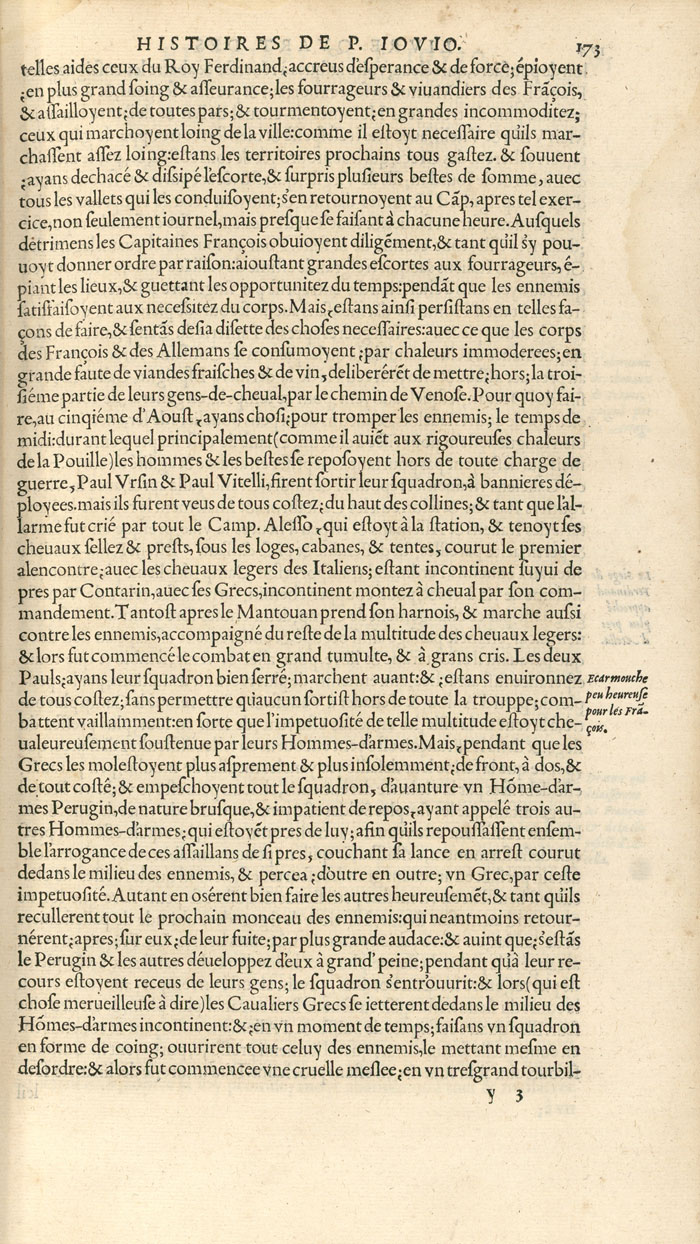 HISTOIRES DE P. IOVIO. 173
telles aides ceux du Roy Ferdinand,accreus d'esperance & de force;épioyent
;en plus grand soing & asseurance;les fourrageurs & viuandiers des Frãçois,
& assailloyent;de toutes pars;& tourmentoyent;en grandes incommoditez;
ceux qui marchoyent loing de la ville:comme il estoyt necessaire qu'ils mar-
chassent assez loing:estans les territoires prochains tous gastez. & souuent
;ayans dechacé & dissipé l'escorte,& surpris plusieurs bestes de somme, auec
tous les vallets qui les conduisoyent;s'en retournoyent au Cãp, apres tel exer-
cice,non seulement iournel,mais presque se faisant à chacune heure. Ausquels
détrimens les Capitaines François obuioyent diligẽment,& tant qu'il s'y pou-
uoyt donner ordre par raison:aioustant grandes escortes aux fourrageurs, é-
piant les lieux,& guettant les opportunitez du temps:pendãt que les ennemis
satisfaisoyent aux necessitez du corps. Mais,estans ainsi persistans en telles fa-
çons de faire,& sentãs desia disette des choses necessaires:auec ce que les corps
des François & des Allemans se consumoyent ;par chaleurs immoderees;en
grande faute de viandes fraisches & de vin, deliberérẽt de mettre;hors;la troi-
siéme partie de leurs gens-de-cheual,par le chemin de Venose. Pour quoy fai-
re,au cinqiéme d'Aoust,ayans chosi;pour tromper les ennemis; le temps de
midi:durant lequel principalement(comme il auiẽt aux rigoureuses chaleurs
de la Pouille)les hommes & les bestes se reposoyent hors de toute charge de
guerre, Paul Vrsin & Paul Vitelli,firent sortir leur squadron,à bannieres dé-
ployees.mais ils furent veus de tous costez;du haut des collines;& tant que l'al-
larme fut crié par tout le Camp. Alesso,qui estoyt à la station, & tenoyt ses
cheuaux sellez & prests, sous les loges, cabanes, & tentes, courut le premier
alencontre;auec les cheuaux legers des Italiens; estant incontinent suyui de
pres par Contarin,auec ses Grecs,incontinent montez à cheual par son com-
mandement. Tantost apres le Mantouan prend son harnois, & marche aussi
contre les ennemis,accompaigné du reste de la multitude des cheuaux legers:
& lors fut commencé le combat en grand tumulte, & à grans cris. Les deux
Pauls;ayans leur squadron bien serré;marchent auant:& ;estans enuironnez
de tous costez;sans permettre qu'aucun sortist hors de toute la trouppe;com-
battent vaillamment:en sorte que l'impetuosité de telle multitude estoyt che-
ualeureusement soustenue par leurs Hommes-d'armes. Mais,pendant que les
Grecs les molestoyent plus asprement & plus insolemment;de front, à dos,&
de tout costé;& empeschoyent tout le squadron, d'auanture vn Hõme-d'ar-
mes Perugin,de nature brusque,& impatient de repos,ayant appelé trois au-
tres Hommes-d'armes;qui estoyẽt pres de luy;afin qu'ils repoussassent ensem-
ble l'arrogance de ces assaillans de si pres, couchant sa lance en arrest courut
dedans le milieu des ennemis, & percea ;d'outre en outre; vn Grec,par ceste
impetuosité. Autant en osérent bien faire les autres heureusemẽt,& tant qu'ils
recullerent tout le prochain monceau des ennemis:qui neantmoins retour-
nérent;apres;sur eux;de leur fuite;par plus grande audace:& auint que;s'estãs
le Perugin & les autres déueloppez d'eux à grand' peine;pendant qu'à leur re-
cours estoyent receus de leurs gens; le squadron s'entr'ouurit:& lors(qui est
chose merueilleuse à dire)les Caualiers Grecs se ietterent dedans le milieu des
Hõmes-d'armes incontinent:&;en vn moment de temps;faisans vn squadron
en forme de coing; ouurirent tout celuy des ennemis,le mettant mesme en
desordre:& alors fut commencee vne cruelle meslee;en vn tresgrand tourbil-
Ecarmouche
peu heureuse
pour les Frã-
çois.
y 3